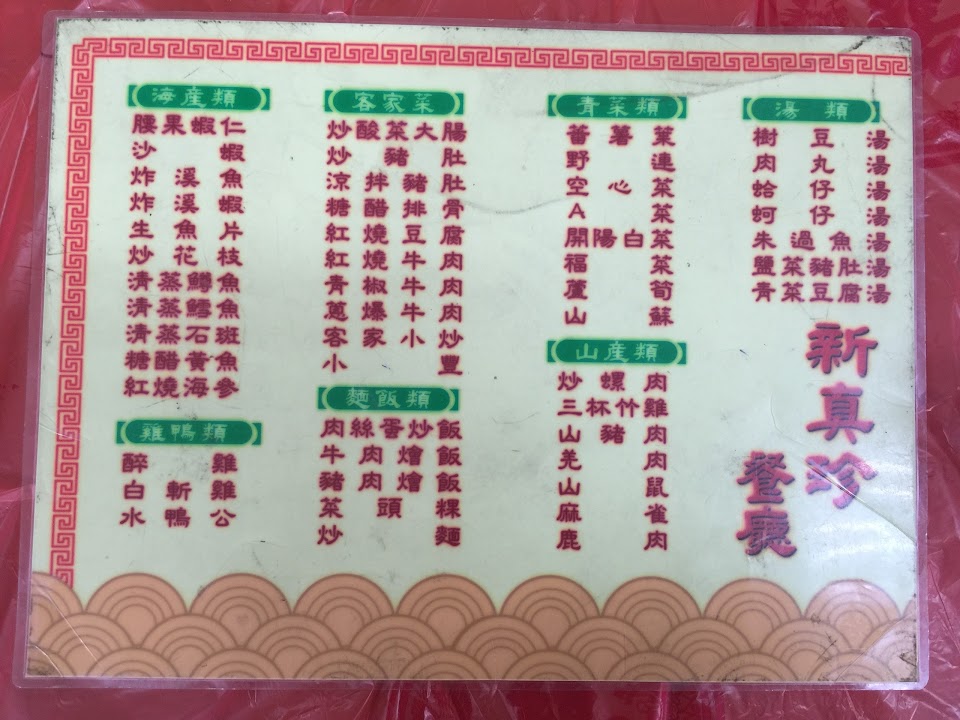 海產類
腰果蝦仁
沙蝦
炸溪魚
炸溪蝦
生魚片
炒花枝
清蒸鱒魚
清蒸鱈魚
清蒸石斑
糖醋黃魚
紅燒海參
雞鴨類
醉雞
白斬雞
水鴨公
客家菜
炒酸菜大腸
炒豬肚
涼拌豬肚
糖醋排骨
紅燒豆腐
紅燒牛肉
青椒牛肉
蔥爆牛肉
客家小炒
小豐
麵飯類
肉絲蛋炒飯
牛肉燴飯
豬肉燴飯
菜頭粿
炒麵
青菜類
蕃薯葉
野連
空心菜
A菜
開陽白菜
福菜
蘆筍
山蘇
山產類
炒螺肉
三杯竹雞
山豬肉
羌肉
山鼠
麻雀
鹿肉
湯類
樹豆湯
肉丸湯
蛤仔湯
蚵仔湯
朱過魚湯
鹽菜豬肚湯
青菜豆腐湯
新真珍
餐廳